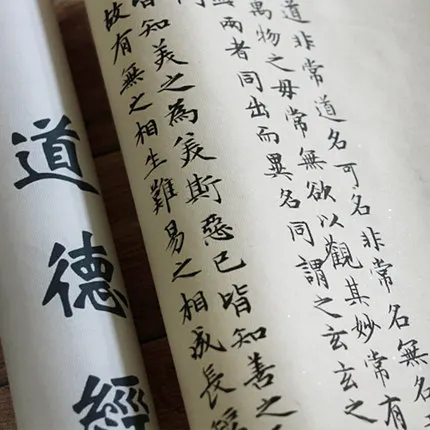 道非常道名可名非常名無名
萬物之母常無欲以觀其妙常有
兩者同出而異名同謂之玄玄之
知美之為美斯惡已皆知善之
故有無之相生難易之相成長
道德經